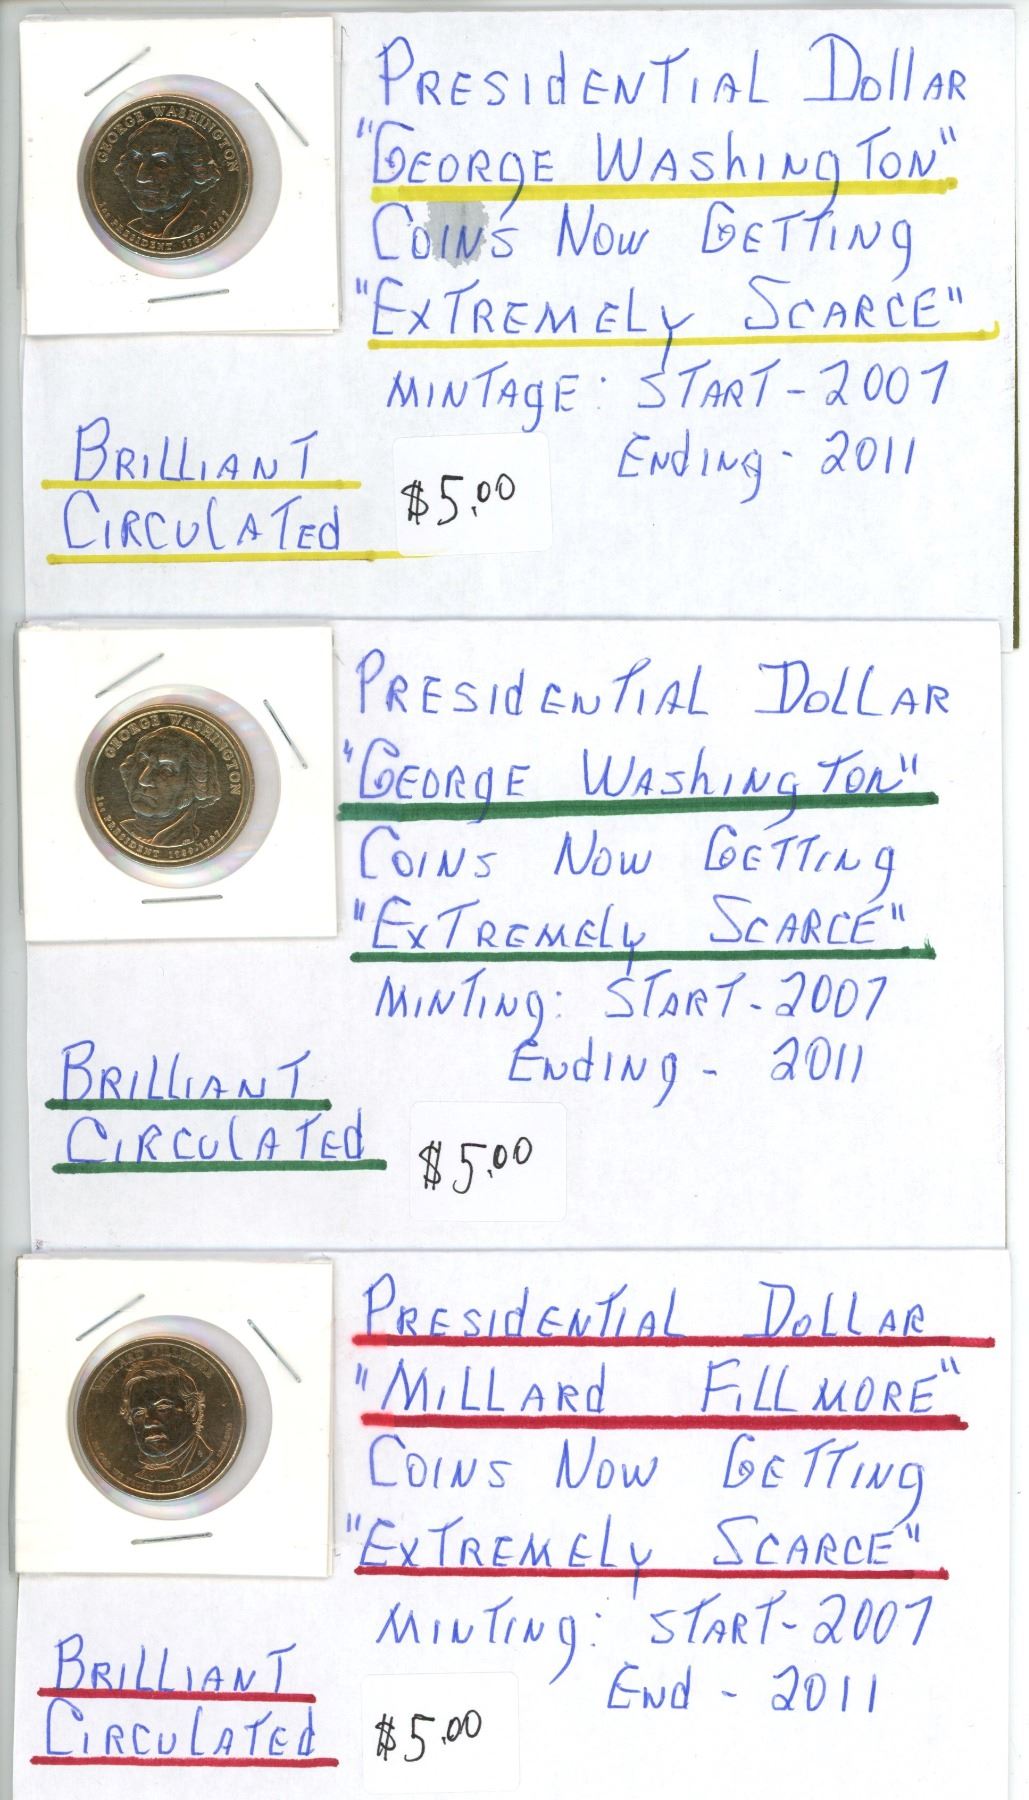 GEORGE WASHINGTON
1st PRESIDENT 1789-1797
PRESIDENTIAL DOLLAR
"GEORGE WASHINGTON"
COINS NOW GETTING
"EXTREMELY SCARCE"
MINTAGE: START - 2007
ENDING - 2011
BRILLIANT
CIRCULATED
$5.00
GEORGE WASHINGTON
1st PRESIDENT 1789-1797
PRESIDENTIAL DOLLAR
"GEORGE WASHINGTON"
COINS NOW GETTING
"EXTREMELY SCARCE"
MINTING: START - 2007
ENDING - 2011
BRILLIANT
CIRCULATED
$5.00
MILLARD FILLMORE
PRESIDENTIAL DOLLAR
"MILLARD FILLMORE"
COINS NOW GETTING
"EXTREMELY SCARCE"
MINTING: START - 2007
END - 2011
BRILLIANT
CIRCULATED
$5.00